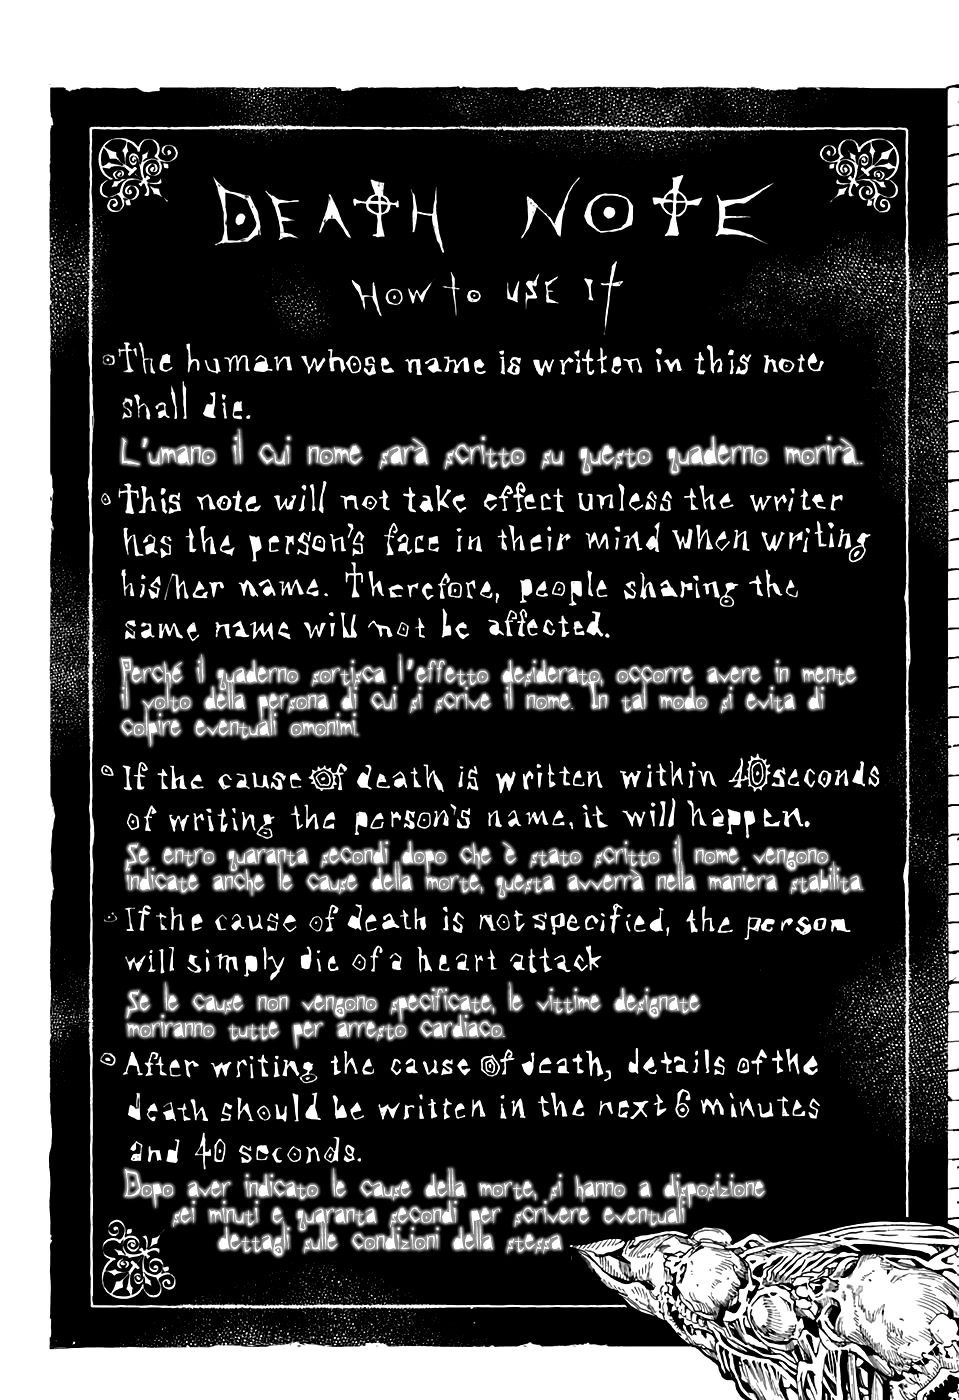 DEATH NOTE
HOW to USE IT
The human whose name is written in this note
shall die.
L'umano il cui nome sarà scritto su questo quaderno morirà.
This note will not take effect unless the writer
has the person's face in their mind when writing
his/her name. Therefore, people sharing the
same name will not be affected.
Perché il quaderno sortisca l'effetto desiderato, occorre avere in mente
il volto della persona di cui si scrive il nome. In tal modo si evita di
colpire eventuali omonimi.
If the cause of death is written within 40 seconds
of writing the person's name, it will happen.
Se entro quaranta secondi dopo che è stato scritto il nome, vengono
indicate anche le cause della morte, questa avverrà nella maniera stabilita.
If the cause of death is not specified, the person
will simply die of a heart attack
Se le cause non vengono specificate, le vittime designate
moriranno tutte per arresto cardiaco.
After writing the cause of death, details of the
death should be written in the next 6 minutes
and 40 seconds.
Dopo aver indicato le cause della morte, si hanno a disposizione
sei minuti e quaranta secondi per scrivere eventuali
dettagli sulle condizioni della stessa